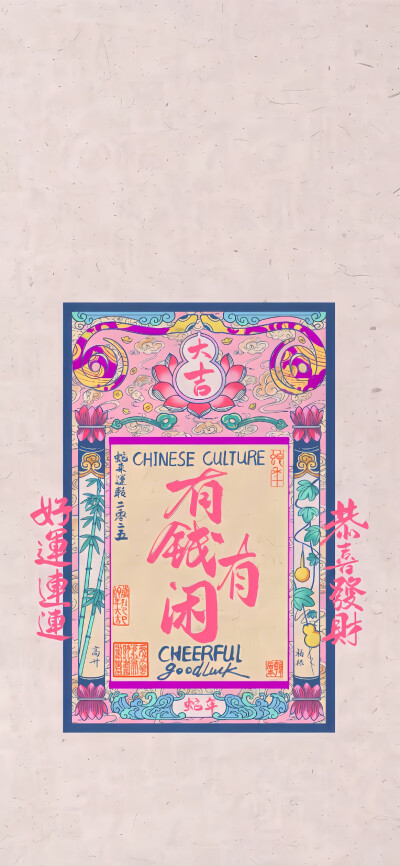 大吉
CHINESE CULTURE
蛇年
蛇来運轉 二零二五
有钱
有闲
好運連連
恭喜發財
CHEERFUL
goodluck
高升
福禄
蛇年